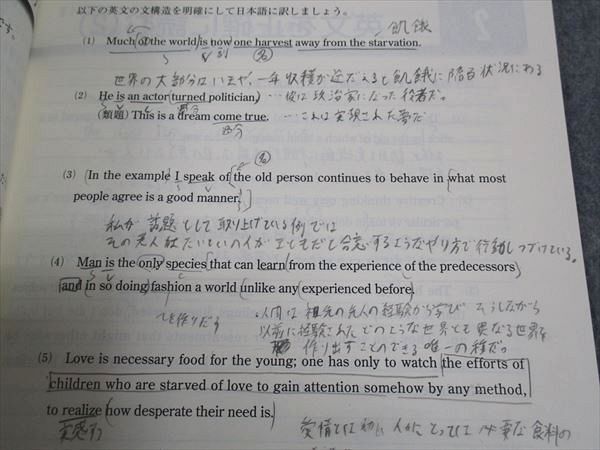 以下の英文の文構造を明確にして日本語に訳しましょう。
飢餓
(1) Much of the world is now one harvest away from the starvation.
S V 副 名
世界の大部分はいまや、一年収穫が途だえると飢餓に陥る状況にある
(2) He is an actor (turned politician) … 彼は政治家になった役者だ。
S V C
(類題) This is a dream come true. … これは実現された夢だ
過分
名
(3) In the example I speak of the old person continues to behave in what most
people agree is a good manner.
私が話題として取り上げている例では
その老人はたいていの人が よしとだと合意するようなやり方で行動しつづけている。
(4) Man is the only species that can learn from the experience of the predecessors
S V C
and in so doing fashion a world unlike any experienced before.
〜を作りだす
人間は祖先の先人の経験から学び そうしながら
以前に経験されたどのような世界とも異なる世界を
作り出すことのできる唯一の種だ。
(5) Love is necessary food for the young; one has only to watch the efforts of
children who are starved of love to gain attention somehow by any method,
to realize how desperate their need is.
実感する
愛情とは幼い人間にとっては 必要な食料の